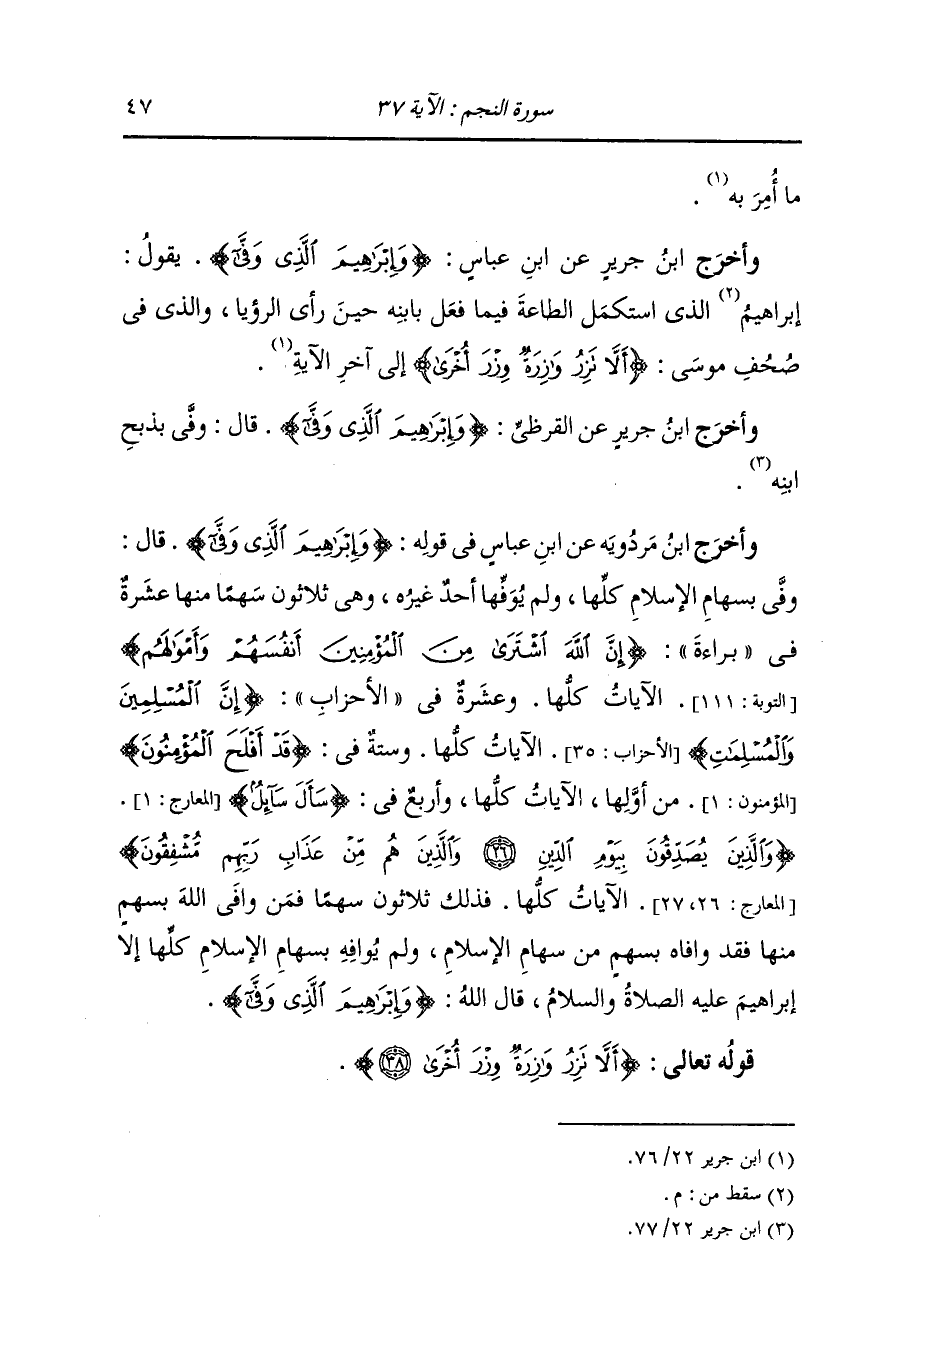 سورة النجم : الآية ٣٧ ٤٧
ما أُمِرَ به(١) .
وأخرَج ابنُ جريرٍ عن ابنِ عباسٍ : ﴿وَإِبْرَٰهِيمَ ٱلَّذِى وَفَّىٰٓ﴾ . يقولُ :
إبراهيمُ(٢) الذى استكمَل الطاعةَ فيما فعَل بابنِه حينَ رأى الرؤيا ، والذى فى
صُحُفِ موسَى : ﴿أَلَّا نَزِرُ وَازِرَةٌ وِزْرَ أُخْرَىٰ﴾ إلى آخرِ الآيةِ(١) .
وأخرَج ابنُ جريرٍ عن القرظىِّ : ﴿وَإِبْرَٰهِيمَ ٱلَّذِى وَفَّىٰٓ﴾ . قال : وفَّى بذبحِ
ابنِه(٣) .
وأخرَج ابنُ مَردُويَه عن ابنِ عباسٍ فى قولِه : ﴿وَإِبْرَٰهِيمَ ٱلَّذِى وَفَّىٰٓ﴾ . قال :
وفَّى بسهامِ الإسلامِ كلِّها ، ولم يُوَفِّها أحدٌ غيرُه ، وهى ثلاثون سَهمًا منها عشَرةٌ
فى « براءةَ » : ﴿إِنَّ ٱللَّهَ ٱشْتَرَىٰ مِنَ ٱلْمُؤْمِنِينَ أَنفُسَهُمْ وَأَمْوَٰلَهُم﴾
[التوبة : ١١١] . الآياتُ كلُّها . وعشَرةٌ فى « الأحزابِ » : ﴿إِنَّ ٱلْمُسْلِمِينَ
وَٱلْمُسْلِمَٰتِ﴾ [الأحزاب : ٣٥] . الآياتُ كلُّها . وستةٌ فى : ﴿قَدْ أَفْلَحَ ٱلْمُؤْمِنُونَ﴾
[المؤمنون : ١] . من أوَّلِها ، الآياتُ كلُّها ، وأربعٌ فى : ﴿سَأَلَ سَآئِلٌۢ﴾ [المعارج : ١] .
﴿وَٱلَّذِينَ يُصَدِّقُونَ بِيَوْمِ ٱلدِّينِ ٢٦ وَٱلَّذِينَ هُم مِّنْ عَذَابِ رَبِّهِم مُّشْفِقُونَ﴾
[المعارج : ٢٦، ٢٧] . الآياتُ كلُّها . فذلك ثلاثون سهمًا فمَن وافَى اللهَ بسهمٍ
منها فقد وافاه بسهمٍ من سهامِ الإسلامِ ، ولم يُوافِهِ بسهامِ الإسلامِ كلِّها إلا
إبراهيمَ عليه الصلاةُ والسلامُ ، قال اللهُ : ﴿وَإِبْرَٰهِيمَ ٱلَّذِى وَفَّىٰٓ﴾ .
قولُه تعالى : ﴿أَلَّا نَزِرُ وَازِرَةٌ وِزْرَ أُخْرَىٰ ٣٨﴾ .
(١) ابن جرير ٢٢/ ٧٦.
(٢) سقط من : م .
(٣) ابن جرير ٢٢/ ٧٧.